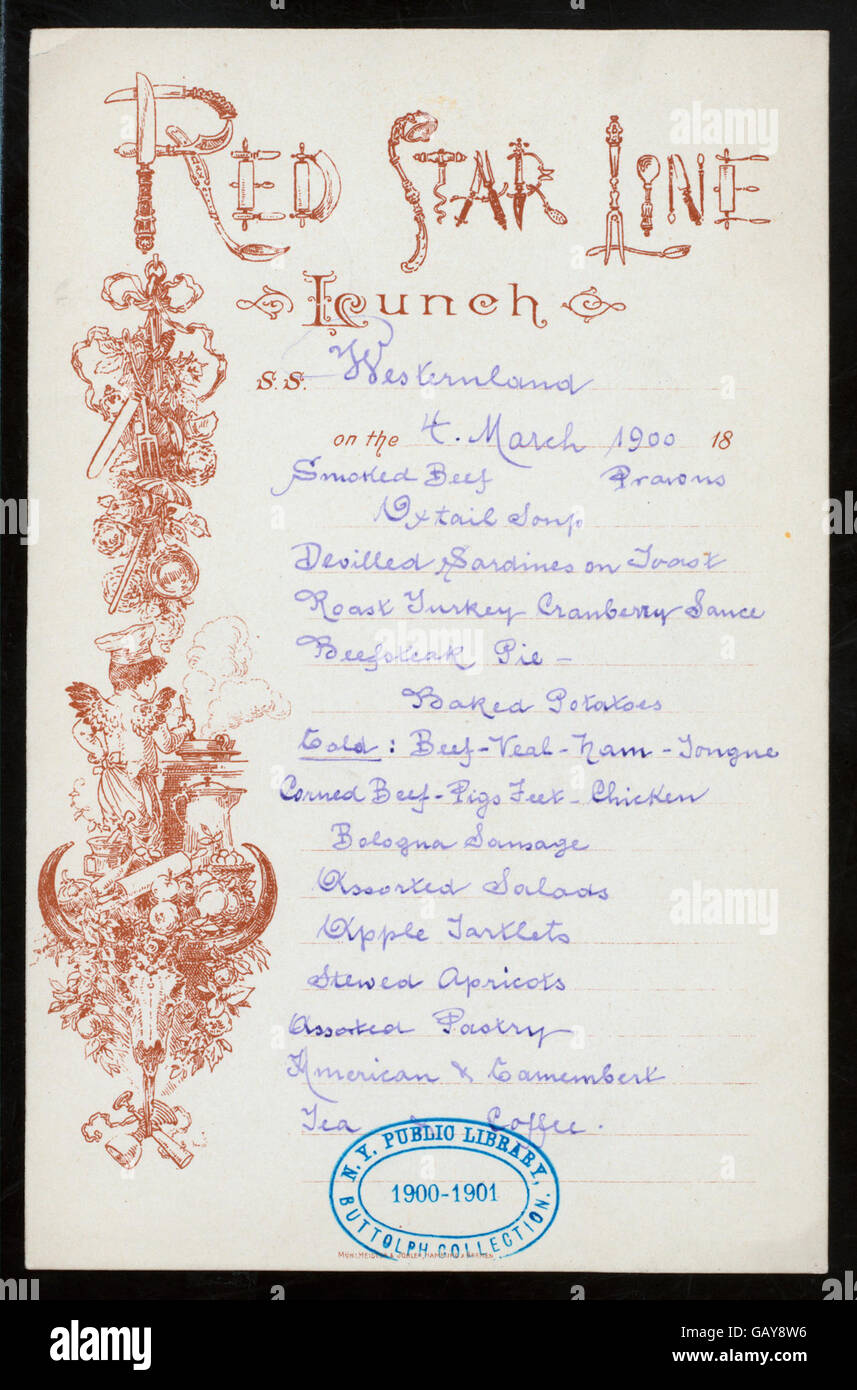 RED STAR LINE
Lunch
S.S. Westernland
on the 4. March 1900 18
Smoked Beef Prawns
Oxtail Soup
Devilled Sardines on Toast
Roast Turkey Cranberry Sauce
Beefsteak Pie -
Baked Potatoes
Cold: Beef-Veal-Ham-Tongue
Corned Beef-Pigs Feet-Chicken
Bologna Sausage
Assorted Salads
Apple Tartlets
Stewed Apricots
Assorted Pastry
American & Camembert
Tea & Coffee.
N.Y. PUBLIC LIBRARY,
1900-1901
BUTTOLPH COLLECTION.
alamy
alamy
alamy
alamy
Image ID: GAY8W6
www.alamy.com